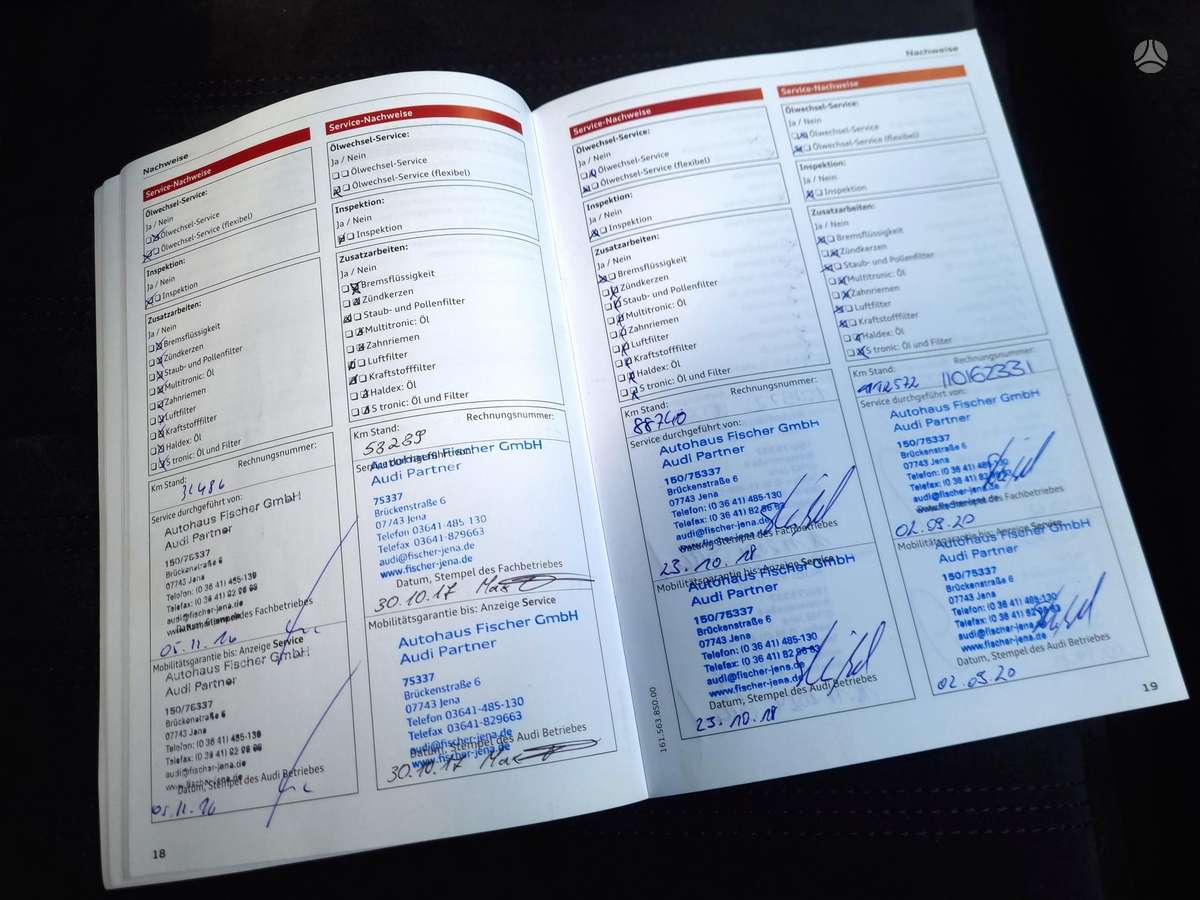 Nachweise
Service-Nachweise
Ölwechsel-Service:
Ja / Nein
Ölwechsel-Service
Ölwechsel-Service (flexibel)
Inspektion:
Ja / Nein
Inspektion
Zusatzarbeiten:
Ja / Nein
Bremsflüssigkeit
Zündkerzen
Staub- und Pollenfilter
Multitronic: Öl
Zahnriemen
Luftfilter
Kraftstofffilter
Haldex: Öl
S tronic: Öl und Filter
Rechnungsnummer:
Km Stand:
31486
Service durchgeführt von:
Autohaus Fischer GmbH
Audi Partner
150/75337
Brückenstraße 6
07743 Jena
Telefon: (0 36 41) 485-130
Telefax: (0 36 41) 82 96 63
audi@fischer-jena.de
www.fischer-jena.de
Datum, Stempel des Fachbetriebes
05.11.16
Mobilitätsgarantie bis: Anzeige Service
Autohaus Fischer GmbH
Audi Partner
150/75337
Brückenstraße 6
07743 Jena
Telefon: (0 36 41) 485-130
Telefax: (0 36 41) 82 96 63
audi@fischer-jena.de
www.fischer-jena.de
Datum, Stempel des Audi Betriebes
05.11.16
18
Service-Nachweise
Ölwechsel-Service:
Ja / Nein
Ölwechsel-Service
Ölwechsel-Service (flexibel)
Inspektion:
Ja / Nein
Inspektion
Zusatzarbeiten:
Ja / Nein
Bremsflüssigkeit
Zündkerzen
Staub- und Pollenfilter
Multitronic: Öl
Zahnriemen
Luftfilter
Kraftstofffilter
Haldex: Öl
S tronic: Öl und Filter
Rechnungsnummer:
Km Stand:
53289
Service durchgeführt von:
Autohaus Fischer GmbH
Audi Partner
75337
Brückenstraße 6
07743 Jena
Telefon 03641-485-130
Telefax 03641-829663
audi@fischer-jena.de
www.fischer-jena.de
Datum, Stempel des Fachbetriebes
30.10.17
Mobilitätsgarantie bis: Anzeige Service
Autohaus Fischer GmbH
Audi Partner
75337
Brückenstraße 6
07743 Jena
Telefon 03641-485-130
Telefax 03641-829663
audi@fischer-jena.de
www.fischer-jena.de
Datum, Stempel des Audi Betriebes
30.10.17
Service-Nachweise
Ölwechsel-Service:
Ja / Nein
Ölwechsel-Service
Ölwechsel-Service (flexibel)
Inspektion:
Ja / Nein
Inspektion
Zusatzarbeiten:
Ja / Nein
Bremsflüssigkeit
Zündkerzen
Staub- und Pollenfilter
Multitronic: Öl
Zahnriemen
Luftfilter
Kraftstofffilter
Haldex: Öl
S tronic: Öl und Filter
Rechnungsnummer:
Km Stand:
88740
Service durchgeführt von:
Autohaus Fischer GmbH
Audi Partner
150/75337
Brückenstraße 6
07743 Jena
Telefon: (0 36 41) 485-130
Telefax: (0 36 41) 82 96 63
audi@fischer-jena.de
www.fischer-jena.de
Datum, Stempel des Fachbetriebes
23.10.18
Mobilitätsgarantie bis: Anzeige Service
Autohaus Fischer GmbH
Audi Partner
150/75337
Brückenstraße 6
07743 Jena
Telefon: (0 36 41) 485-130
Telefax: (0 36 41) 82 96 63
audi@fischer-jena.de
www.fischer-jena.de
Datum, Stempel des Audi Betriebes
23.10.18
161.563.850.00
Nachweise
Service-Nachweise
Ölwechsel-Service:
Ja / Nein
Ölwechsel-Service
Ölwechsel-Service (flexibel)
Inspektion:
Ja / Nein
Inspektion
Zusatzarbeiten:
Ja / Nein
Bremsflüssigkeit
Zündkerzen
Staub- und Pollenfilter
Multitronic: Öl
Zahnriemen
Luftfilter
Kraftstofffilter
Haldex: Öl
S tronic: Öl und Filter
Rechnungsnummer:
Km Stand:
110162331
Service durchgeführt von:
Autohaus Fischer GmbH
Audi Partner
150/75337
Brückenstraße 6
07743 Jena
Telefon: (0 36 41) 485-130
Telefax: (0 36 41) 82 96 63
audi@fischer-jena.de
www.fischer-jena.de
Datum, Stempel des Fachbetriebes
02.09.20
Mobilitätsgarantie bis: Anzeige Service
Autohaus Fischer GmbH
Audi Partner
150/75337
Brückenstraße 6
07743 Jena
Telefon: (0 36 41) 485-130
Telefax: (0 36 41) 82 96 63
audi@fischer-jena.de
www.fischer-jena.de
Datum, Stempel des Audi Betriebes
02.09.20
19